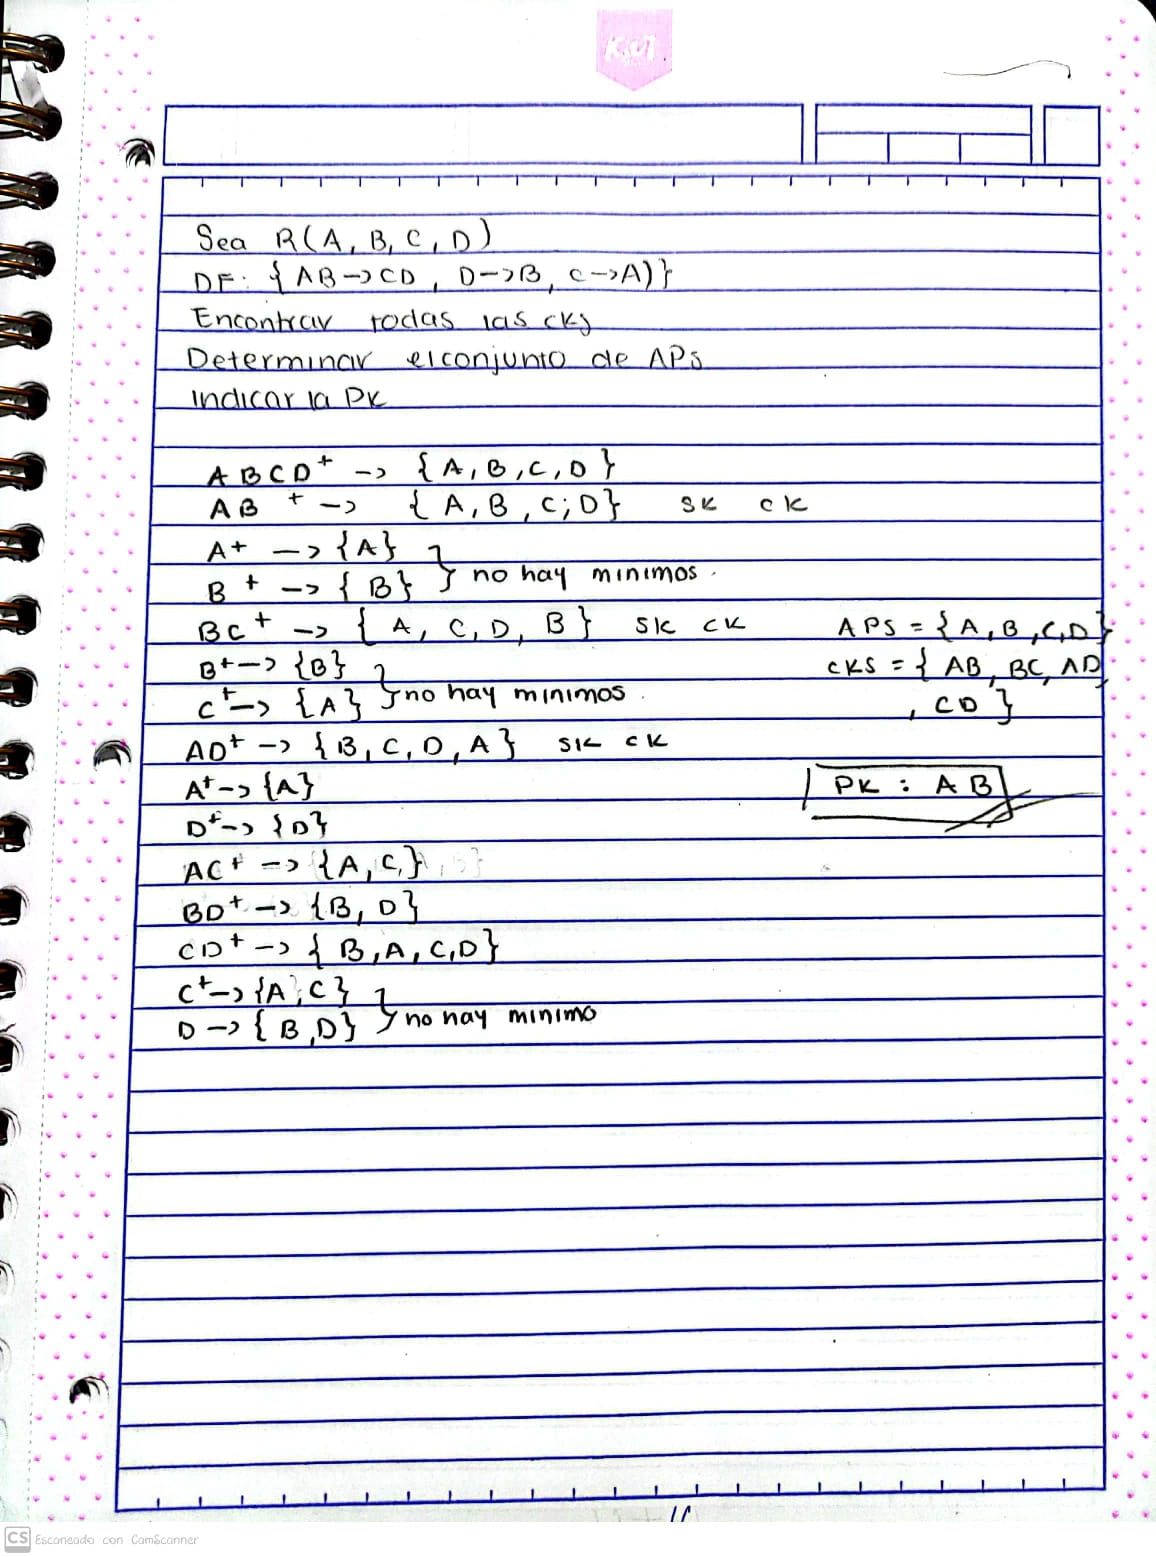 Sea R(A, B, C, D)
DF: { AB->CD, D->B, C->A)}
Encontrar todas las cks
Determinar el conjunto de APs
Indicar la PK
ABCD+ -> {A, B, C, D}
AB + -> {A, B, C; D} SK CK
A+ -> {A}
B + -> {B} } no hay minimos.
BC+ -> {A, C, D, B} SK CK APS = {A, B, C, D}
B+-> {B} CKS = { AB, BC, AD
C+-> {A} } no hay minimos. , CD }
AD+ -> {B, C, D, A} SK CK
A+-> {A} PK : AB
D+-> {D}
AC+ -> {A, C,}
BD+ -> {B, D}
CD+ -> { B, A, C, D}
C+-> {A, C}
D -> {B, D} } no hay minimo
CS Escaneado con CamScanner